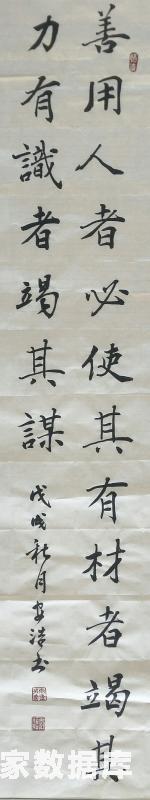 善用人者必使其有材者竭其
力有識者竭其謀
戊戌秋月
家数据库